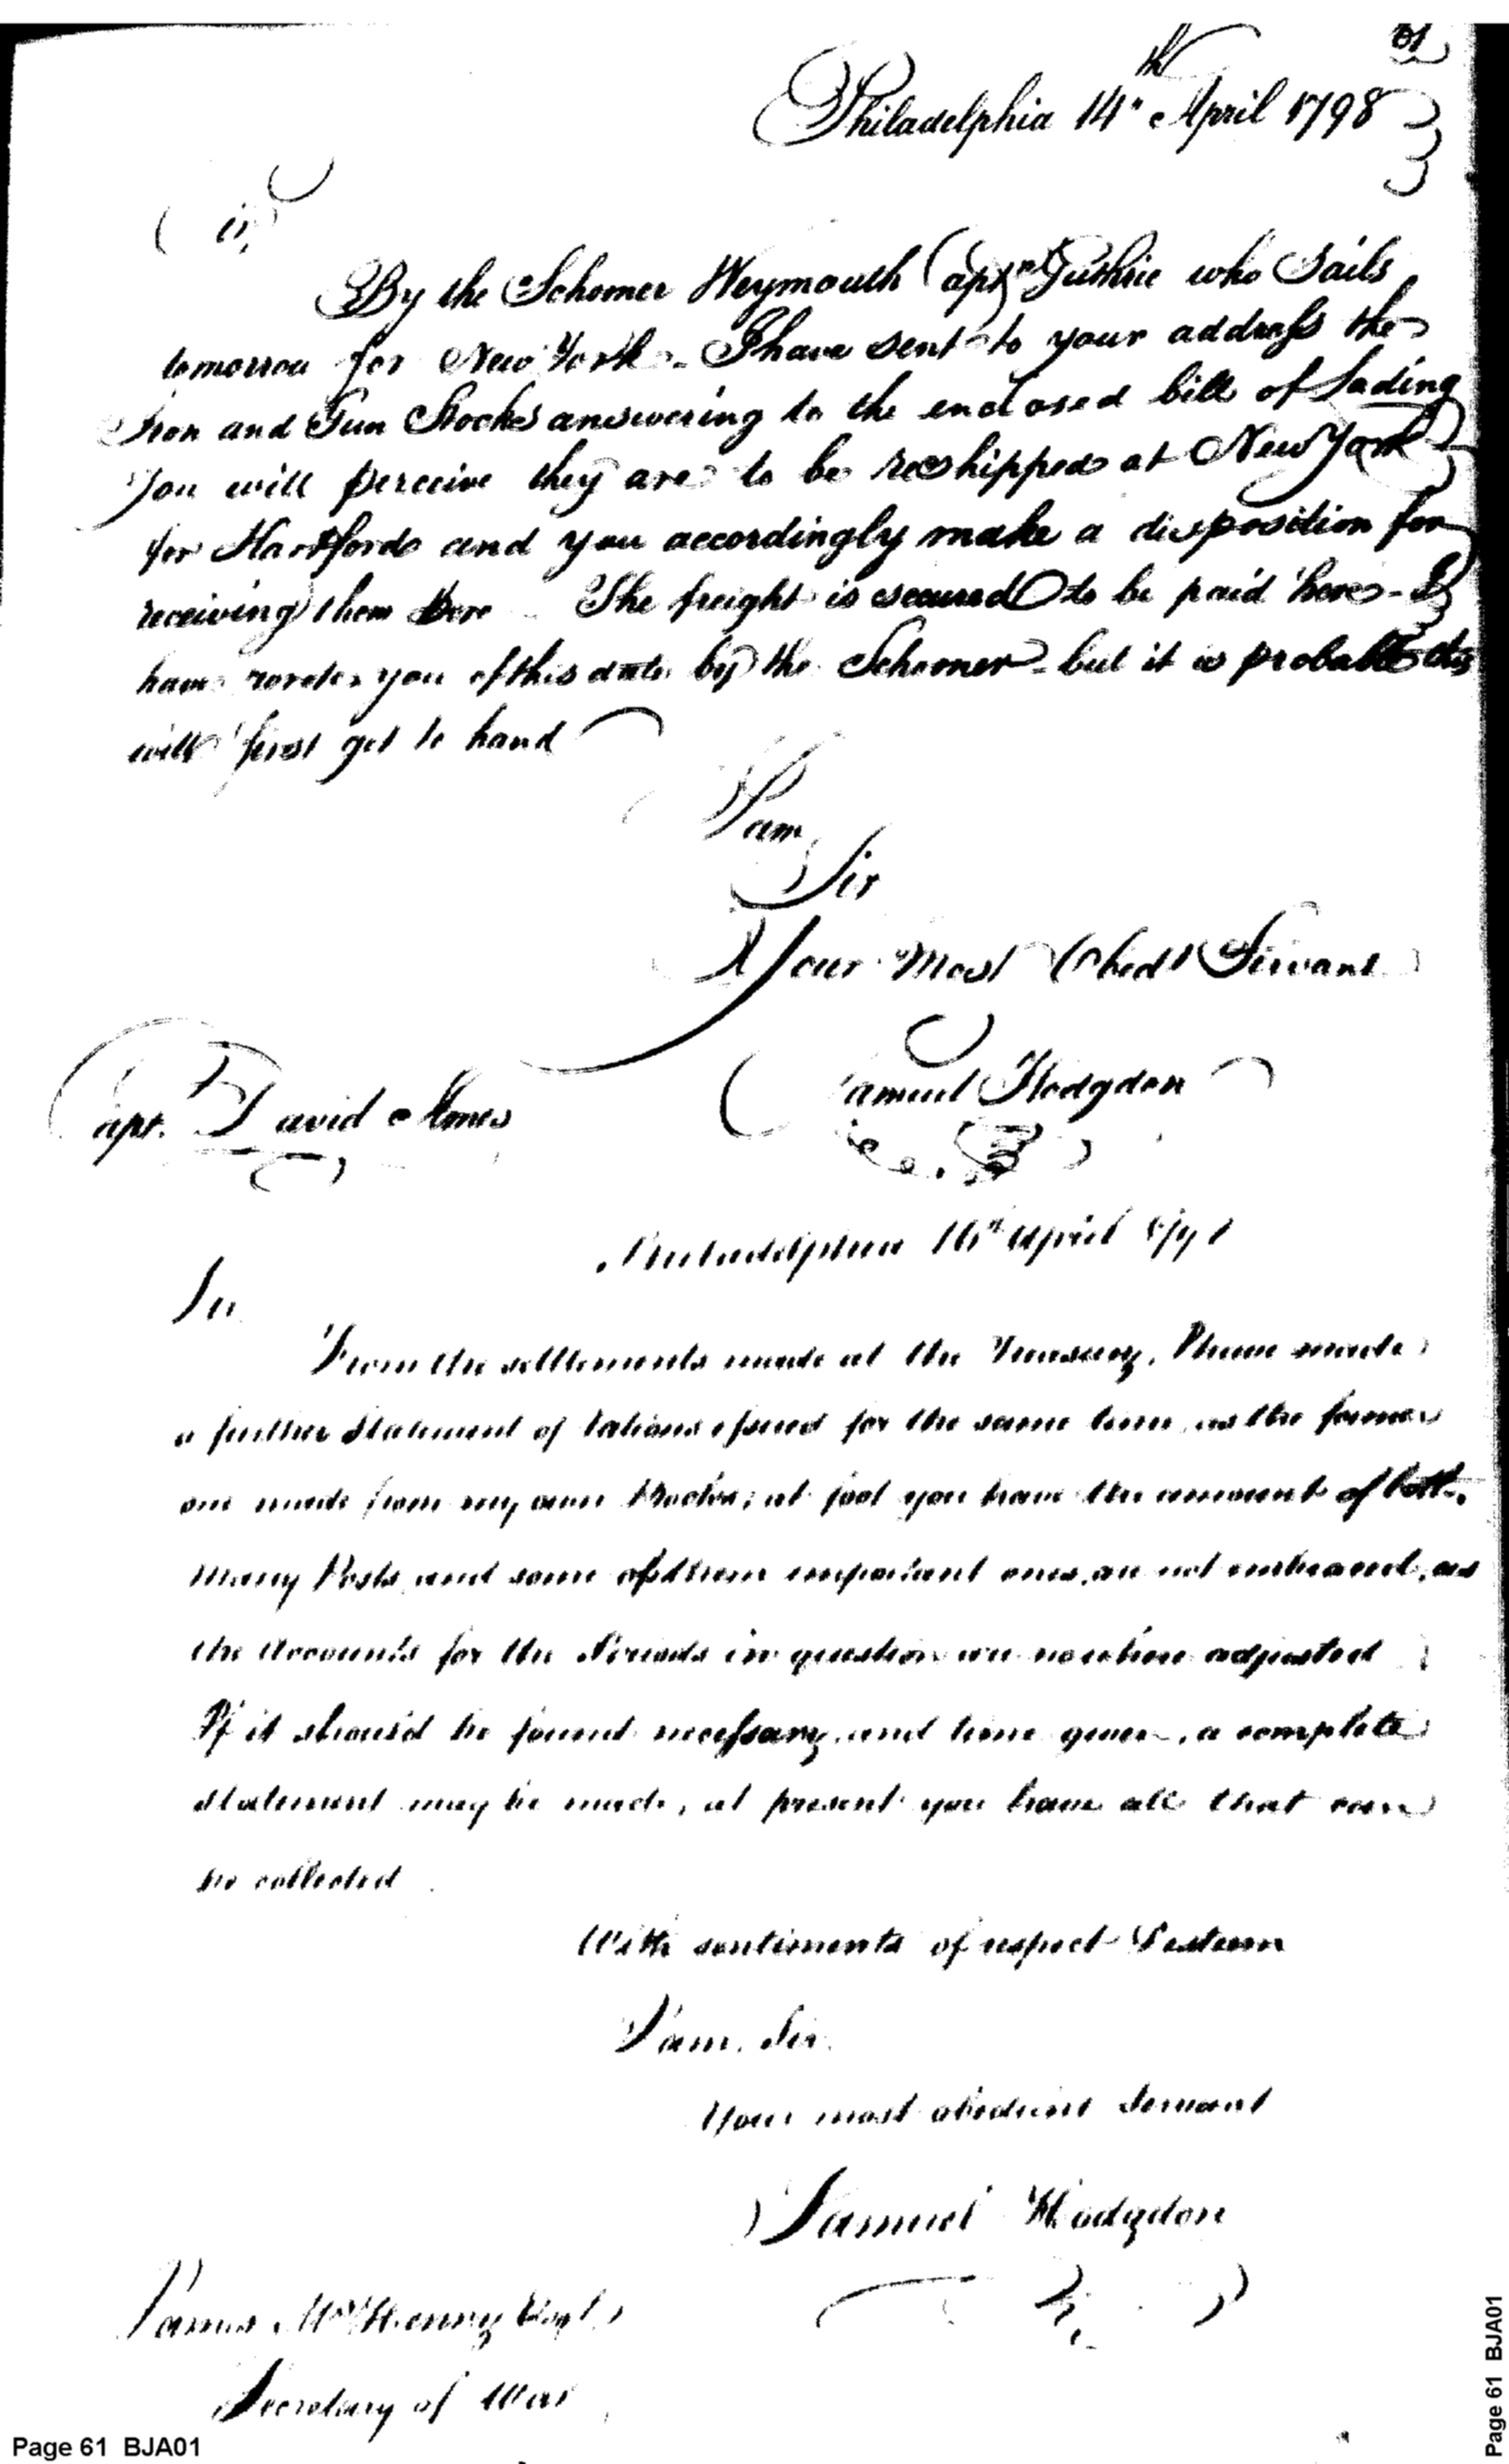 61
Philadelphia 14th April 1798
Sir,
By the Schooner Weymouth Capt Guthrie who Sails
tomorrow for New York - I have sent to your address the
Iron and Gun Stocks answering to the enclosed bill of lading
You will perceive they are to be reshipped at New York
for Hartford and you accordingly make a disposition for
receiving them there The freight is secured to be paid here - I
have wrote you of this date by the Schooner - but it is probable this
will first get to hand
I am
Sir
Your Most Obedt Servant
Samuel Hodgdon
Capt. David Ames
Philadelphia 16th April 1798
Sir
From the settlements made at the Treasury, I have made
a further Statement of Rations issued for the same time, as the former
one made from my own Books; at foot you have the amount of both.
Many Posts and some of them important ones, are not embraced, as
the Accounts for the Periods in question are no where adjusted
If it shou'd be found necessary, and time given, a complete
statement may be made, at present you have all that can
be collected
With sentiments of respect & esteem
I am, Sir.
Your most obedient Servant
Samuel Hodgdon
James McHenry Esqr
Secretary of War
Page 61 BJA01
Page 61 BJA01